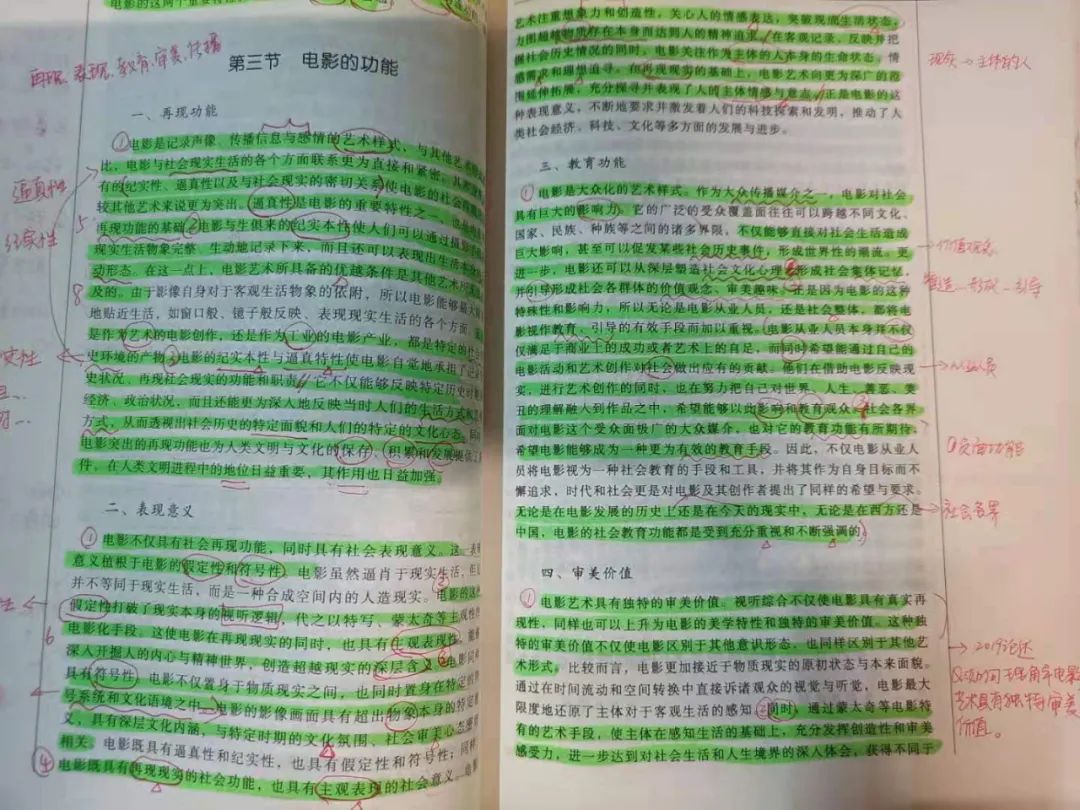 电影的这两个重要特
再现、表现、教育、审美、传播
第三节 电影的功能
一、再现功能
①电影是记录声像、传播信息与感情的艺术样式，与其他艺术
比，电影与社会现实生活的各个方面联系更为直接和紧密，其
有的纪实性、逼真性以及与社会现实的密切关系使电影的社会
较其他艺术来说更为突出。逼真性是电影的重要特性之一，也是
再现功能的基础。②电影与生俱来的纪实本性使人们可以通过摄影
现实生活物象完整、生动地记录下来，而且还可以表现出生活本
动形态。在这一点上，电影艺术所具备的优越条件是其他艺术所
及的。由于影像自身对于客观生活物象的依附，所以电影能够最大
地贴近生活，如窗口般、镜子般反映、表现现实生活的各个方面。
是作为艺术的电影创作，还是作为工业的电影产业，都是特定的社
史环境的产物。③电影的纪实本性与逼真特性使电影自觉地承担了记
史状况、再现社会现实的功能和职责。它不仅能够反映特定历史时期
经济、政治状况，而且还能更为深入地反映当时人们的生活方式和
方式，从而透视出社会历史的特定面貌和人们的特定的文化心态。同
电影突出的再现功能也为人类文明与文化的保存、积累和发展提供了
件，在人类文明进程中的地位日益重要，其作用也日益加强。
二、表现意义
①电影不仅具有社会再现功能，同时具有社会表现意义。这一表
意义植根于电影的假定性和符号性。电影虽然逼肖于现实生活，但
并不等同于现实生活，而是一种合成空间内的人造现实。②电影的这
假定性打破了现实本身的视听逻辑，代之以特写、蒙太奇等主观性
电影化手段。这使电影在再现现实的同时，也具有主观表现性，能
深入开掘人的内心与精神世界，创造超越现实的深层含义。③电影同
具有符号性。电影不仅置身于物质现实之间，也同时置身在特定的
号系统和文化语境之中。电影的影像画面具有超出物象本身的特定
义，具有深层文化内涵，与特定时期的文化氛围、社会审美心态
相关。电影既具有逼真性和纪实性，也具有假定性和符号性；同样
④电影既具有再现现实的社会功能，也具有主观表现的社会意义。电
逼真性
纪实性
5
8
6
艺术注重想象力和创造性，关心人的情感表达，突破现成生活状态，
力图超越物质存在本身而达到人的精神追求。在客观记录、反映并把
握社会历史情况的同时，电影关注作为主体的人本身的生命状态、情
感需求和理想追寻。在再现现实的基础上，电影艺术向更为深广的范
围延伸拓展，充分探寻并表现了人的主体情感与意志。正是电影的这
种表现意义，不断地要求并激发着人们的科技探索和发明，推动了人
类社会经济、科技、文化等多方面的发展与进步。
现实→主体的人
三、教育功能
①电影是大众化的艺术样式。作为大众传播媒介之一，电影对社会
具有巨大的影响力。它的广泛的受众覆盖面往往可以跨越不同文化、
国家、民族、种族等之间的诸多界限。不仅能够直接对社会生活造成
巨大影响，甚至可以促发某些社会历史事件，形成世界性的潮流。更
进一步，电影还可以从深层塑造社会文化心理，形成社会集体记忆，
并引导形成社会各群体的价值观念、审美趣味。正是因为电影的这种
特殊性和影响力，所以无论是电影从业人员，还是社会整体，都将电
影视作教育、引导的有效手段而加以重视。电影从业人员本身并不仅
仅满足于商业上的成功或者艺术上的自足，而同时希望能通过自己的
电影活动和艺术创作对社会做出应有的贡献。他们在借助电影反映现
实，进行艺术创作的同时，也在努力把自己对世界、人生、善恶、美
丑的理解融入到作品之中，希望能够以此影响和教育观众。社会各界
面对电影这个受众面极广的大众媒介，也对它的教育功能有所期待，
希望电影能够成为一种更为有效的教育手段。因此，不仅电影从业人
员将电影视为一种社会教育的手段和工具，并将其作为自身目标而不
懈追求，时代和社会更是对电影及其创作者提出了同样的希望与要求。
无论是在电影发展的历史上还是在今天的现实中，无论是在西方还是
中国，电影的社会教育功能都是受到充分重视和不断强调的。
价值观念
塑造—形成—引导
从业人员
社会各界
四、审美价值
①电影艺术具有独特的审美价值。视听综合不仅使电影具有真实再
现性，同样也可以上升为电影的美学特性和独特的审美价值。这种独
特的审美价值不仅使电影区别于其他意识形态，也同样区别于其他艺
术形式。比较而言，电影更加接近于物质现实的原初状态与本来面貌。
通过在时间流动和空间转换中直接诉诸观众的视觉与听觉，电影最大
限度地还原了主体对于客观生活的感知。②同时，通过蒙太奇等电影特
有的艺术手段，使主体在感知生活的基础上，充分发挥创造性和审美
感受力，进一步达到对社会生活和人生境界的深入体会，获得不同于
艺术具有独特审美
价值。